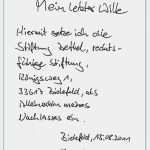 Mein letzter Wille
Hiermit setze ich die
Stiftung Bethel, rechts-
fähige Stiftung,
Königsweg 1,
33617 Bielefeld, als
Alleinerbin meines
Nachlasses ein.
Bielefeld, 15.08.2011